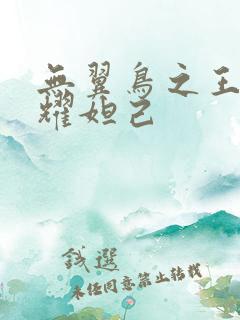 無翼鳥之王
耀妲己
錢選
未经同意禁止转载